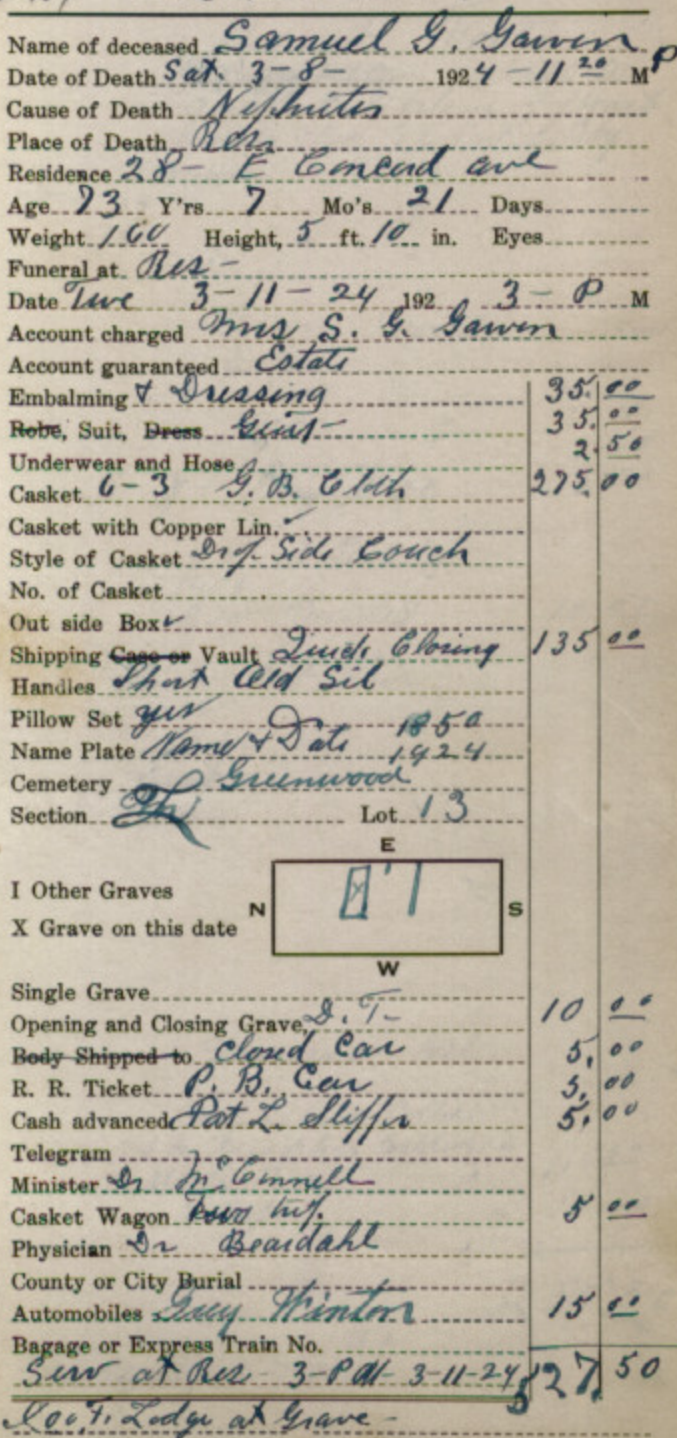 Name of deceased Samuel G. Gawen
Date of Death Sat. 3-8- 1924-11 20 P M
Cause of Death Nephritis
Place of Death Res
Residence 28- E Concord ave
Age 73 Y'rs 7 Mo's 21 Days
Weight 160 Height, 5 ft. 10 in. Eyes
Funeral at Res-
Date Tue 3-11-24 192 3-P M
Account charged Mrs S. G. Gawen
Account guaranteed Estate
Embalming & Dressing 35.00
Robe, Suit, Dress Gents 35.00
Underwear and Hose 2.50
Casket 6-3 G. B. Cloth 275.00
Casket with Copper Lin. ✓
Style of Casket Drof Side Couch
No. of Casket
Out side Box ✓
Shipping Case or Vault Quick Closing 135 00
Handles Short Old Sil
Pillow Set yes
Name Plate Name & Date 1850
1924
Cemetery Greenwood
Section Lot 13
E
I Other Graves
N S
X Grave on this date
W
Single Grave
Opening and Closing Grave, D. T- 10 00
Body Shipped to Closed Car 5.00
R. R. Ticket P. B. Car 5.00
Cash advanced Pat L. Sliffer 5.00
Telegram
Minister Dr McConnell
Casket Wagon 5 00
Physician Dr Beardahl
County or City Burial
Automobiles Grey Winton 15 00
Bagage or Express Train No.
Serv at Res 3-PM 3-11-24 527.50
Lodge at Grave-